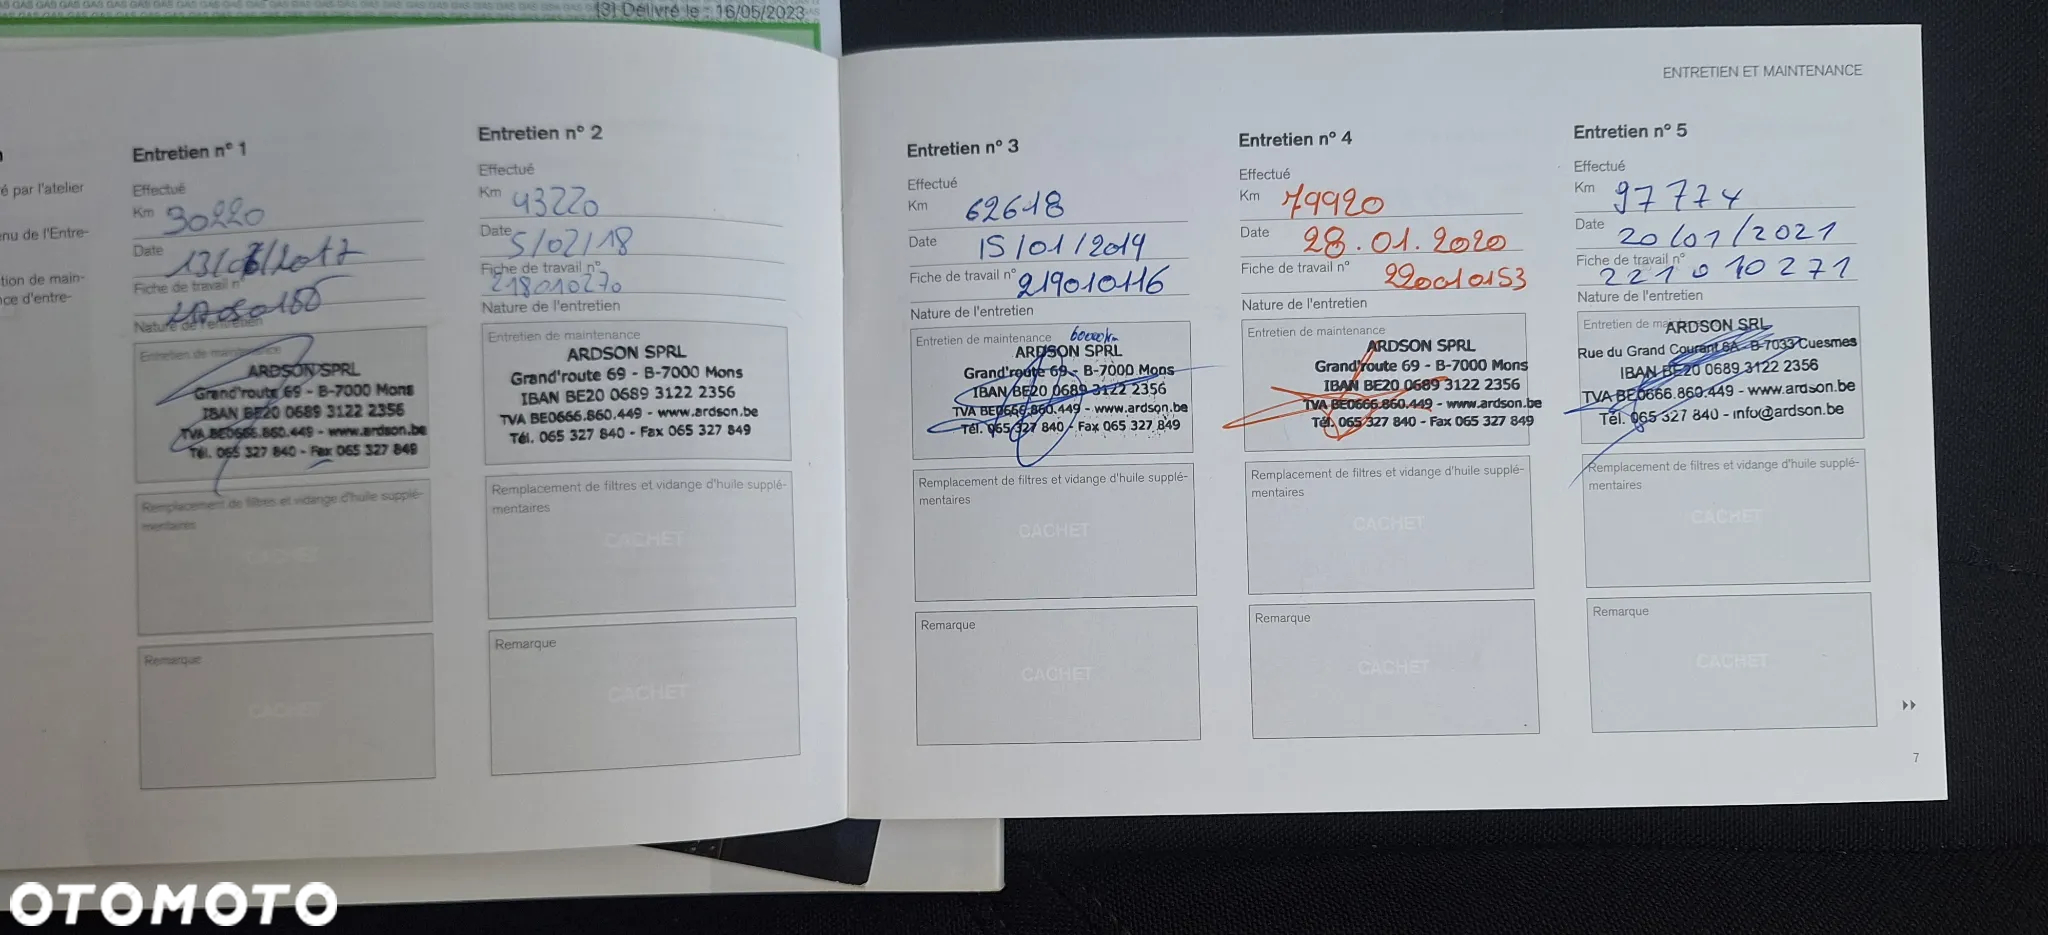 [3] Délivré le : 16/05/2023
é par l'atelier
nu de l'Entre-
tion de main-
ce d'entre-
Entretien n° 1
Effectué
Km 30220
Date
Fiche de travail n°
Nature de l'entretien
Entretien de maintenance
ARDSON SPRL
Grand'route 69 - B-7000 Mons
IBAN BE20 0689 3122 2356
TVA BE0666.860.449 - www.ardson.be
Tél. 065 327 840 - Fax 065 327 849
Remplacement de filtres et vidange d'huile supplé-
mentaires
CACHET
Remarque
CACHET
Entretien n° 2
Effectué
Km 43220
Date 5/02/18
Fiche de travail n°
218010270
Nature de l'entretien
Entretien de maintenance
ARDSON SPRL
Grand'route 69 - B-7000 Mons
IBAN BE20 0689 3122 2356
TVA BE0666.860.449 - www.ardson.be
Tél. 065 327 840 - Fax 065 327 849
Remplacement de filtres et vidange d'huile supplé-
mentaires
CACHET
Remarque
CACHET
ENTRETIEN ET MAINTENANCE
Entretien n° 3
Effectué
Km 62618
Date 15/01/2019
Fiche de travail n° 219010116
Nature de l'entretien
Entretien de maintenance 60000km
ARDSON SPRL
Grand'route 69 - B-7000 Mons
IBAN BE20 0689 3122 2356
TVA BE0666.860.449 - www.ardson.be
Tél. 065 327 840 - Fax 065 327 849
Remplacement de filtres et vidange d'huile supplé-
mentaires
CACHET
Remarque
CACHET
Entretien n° 4
Effectué
Km 79920
Date 28.01.2020
Fiche de travail n° 220010153
Nature de l'entretien
Entretien de maintenance
ARDSON SPRL
Grand'route 69 - B-7000 Mons
IBAN BE20 0689 3122 2356
TVA BE0666.860.449 - www.ardson.be
Tél. 065 327 840 - Fax 065 327 849
Remplacement de filtres et vidange d'huile supplé-
mentaires
CACHET
Remarque
CACHET
Entretien n° 5
Effectué
Km 97774
Date 20/01/2021
Fiche de travail n°
221010271
Nature de l'entretien
Entretien de
ARDSON SRL
Rue du Grand Courant 6A - B-7033 Cuesmes
IBAN BE20 0689 3122 2356
TVA BE0666.860.449 - www.ardson.be
Tél. 065 327 840 - info@ardson.be
Remplacement de filtres et vidange d'huile supplé-
mentaires
CACHET
Remarque
CACHET
7
OTOMOTO